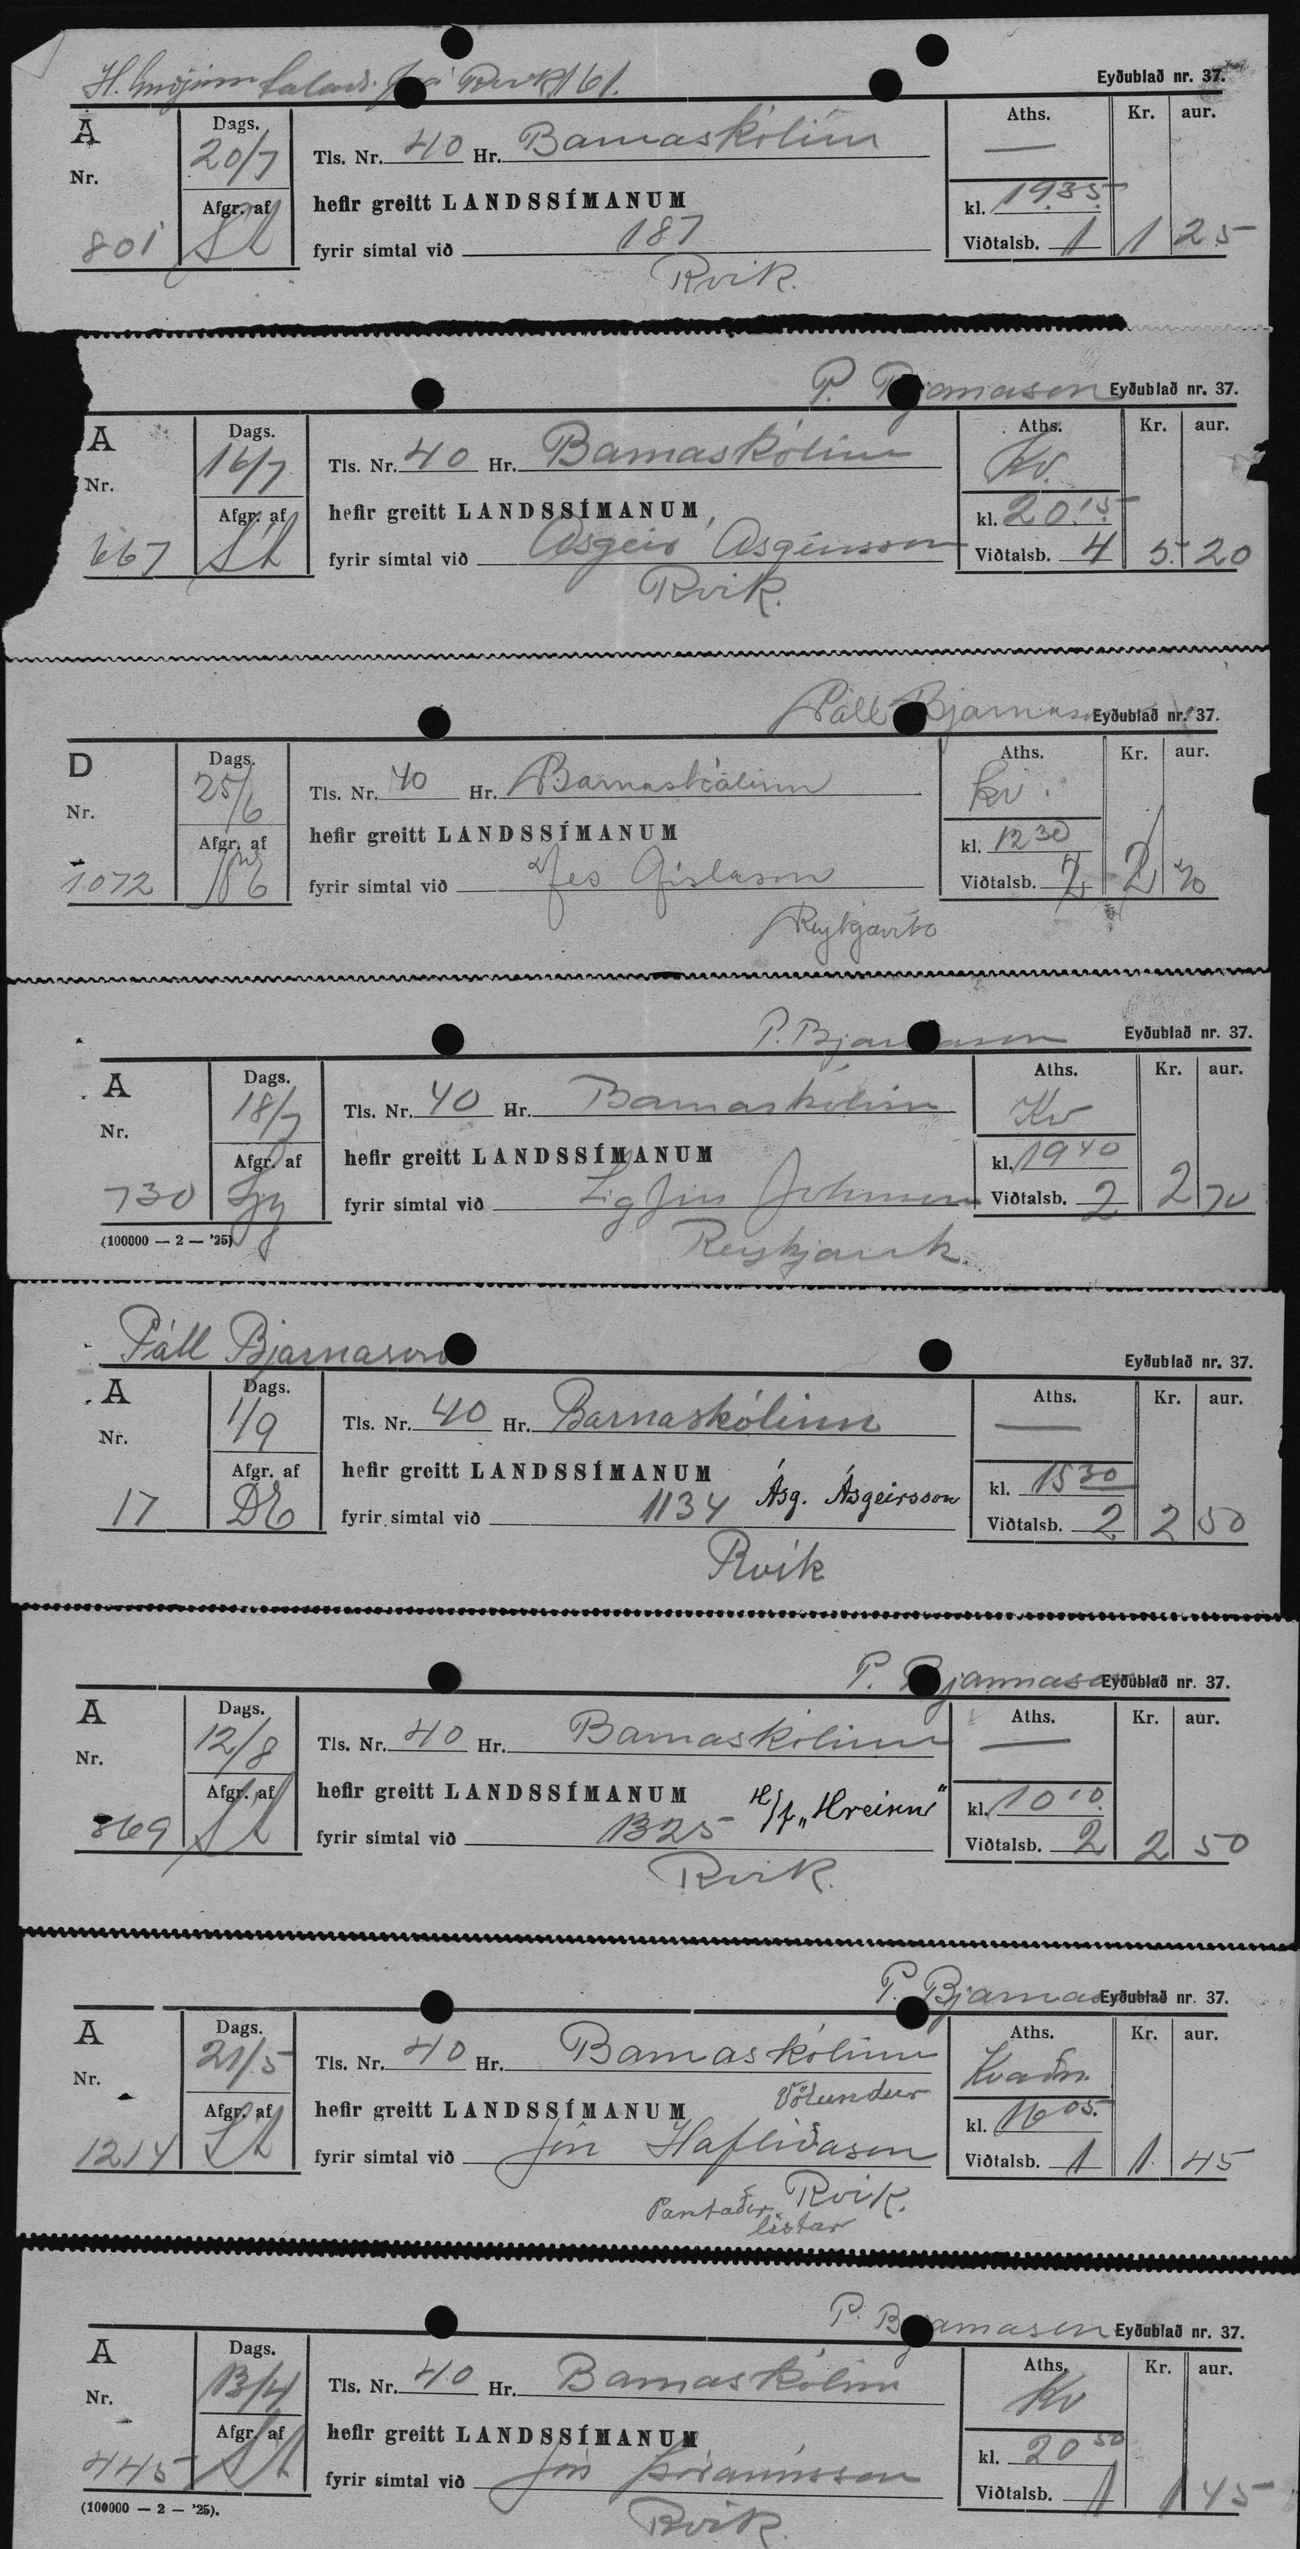 H. talaði frá Rvík 161.
Eyðublað nr. 37.
A Dags. 20/7 Tls. Nr. 40 Hr. Barnaskólinn Aths. — Kr. aur.
Nr. Afgr. af hefir greitt LANDSSÍMANUM kl. 19.35
801 St fyrir símtal við 187 Viðtalsb. 1 1 25
Rvik.
P. Bjarnason Eyðublað nr. 37.
A Dags. 16/7 Tls. Nr. 40 Hr. Barnaskólinn Aths. Kv. Kr. aur.
Nr. Afgr. af hefir greitt LANDSSÍMANUM kl. 20.15
667 St fyrir símtal við Asgeir Asgeirsson Viðtalsb. 4 5. 20
Rvik.
Páll Bjarnason Eyðublað nr. 37.
D Dags. 25/6 Tls. Nr. 40 Hr. Barnaskólinn Aths. kv. Kr. aur.
Nr. Afgr. af hefir greitt LANDSSÍMANUM kl. 12 30
1072 fyrir símtal við Jes Gíslason Viðtalsb. 2 2 70
Reykjavík
P. Bjarnason Eyðublað nr. 37.
A Dags. 18/7 Tls. Nr. 40 Hr. Barnaskólinn Aths. Kv Kr. aur.
Nr. Afgr. af hefir greitt LANDSSÍMANUM kl. 19 40
730 fyrir símtal við Viðtalsb. 2 2 70
(100000 — 2 — '25) Reykjavik
Páll Bjarnason Eyðublað nr. 37.
A Dags. 1/9 Tls. Nr. 40 Hr. Barnaskólinn Aths. — Kr. aur.
Nr. Afgr. af hefir greitt LANDSSÍMANUM kl. 15 30
17 DE fyrir símtal við 1134 Ásg. Ásgeirsson Viðtalsb. 2 2 50
Rvík
P. Bjarnason Eyðublað nr. 37.
A Dags. 12/8 Tls. Nr. 40 Hr. Barnaskólinn Aths. — Kr. aur.
Nr. Afgr. af hefir greitt LANDSSÍMANUM H/f „Hreinn" kl. 10 10
869 St fyrir símtal við B25 Viðtalsb. 2 2 50
Rvik.
P. Bjarnason Eyðublað nr. 37.
A Dags. 21/5 Tls. Nr. 40 Hr. Barnaskólinn Aths. Kvaðn. Kr. aur.
Nr. Afgr. af hefir greitt LANDSSÍMANUM Völundur kl. 16 05.
1214 St fyrir símtal við Jón Hafliðason Viðtalsb. 1 1. 45
Rvik.
Pantaðir
listar
P. Bjarnason Eyðublað nr. 37.
A Dags. 13/4 Tls. Nr. 40 Hr. Barnaskólinn Aths. Kv Kr. aur.
Nr. Afgr. af hefir greitt LANDSSÍMANUM kl. 20 50
445 St fyrir símtal við Jón Þórarinsson Viðtalsb. 1 1 45
(100000 — 2 — '25). Rvik.